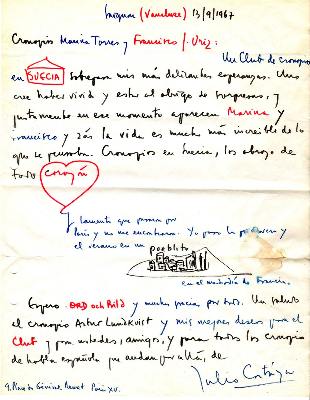 Saignon (Vaucluse) 13/9/1967
Cronopios Marina Torres y Francisco J. Uriz:
Un Club de cronopios
en SUECIA sobrepasa mis más delirantes esperanzas. Uno
cree haber vivido y estar al abrigo de sorpresas, y
justamente en ese momento aparecen Marina y
Francisco y zás la vida es mucho más increíble de lo
que se pensaba. Cronopios en Suecia, los abrazo de
todo corazón
Y lamento que pasaran por
París y no me encontraran. Yo paso la primavera y
el verano en un pueblito
en el mediodía de Francia.
Espero ORD och Bild y muchas gracias por todo. Un saludo
al cronopio Artur Lundkvist y mis mejores deseos para el
Club y para ustedes, amigos, y para todos los cronopios
de habla española que andan por allá, de
Julio Cortázar
9, Place du Général Beuret Paris XV.